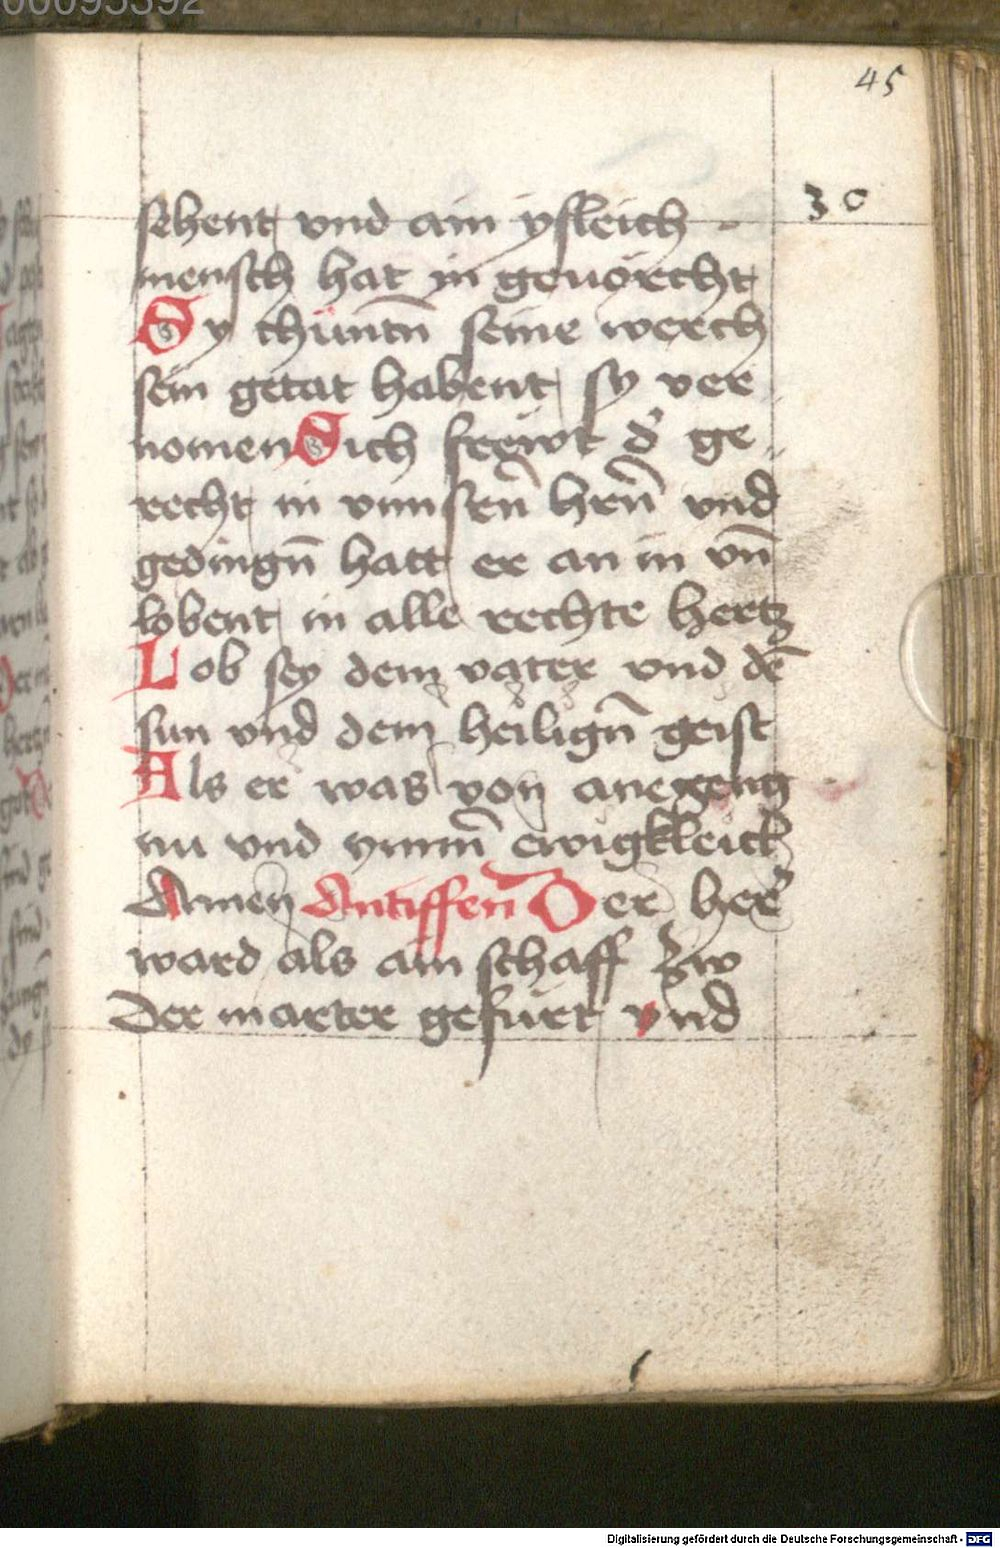 00095392
45
30
sehent vnd ain ysleich
mensch hat in geuörcht
Sy thüntn̄ seine werch
sein getat habent sy ver
nomen Sich frewt d' ge
recht in vnnsren̄ hrēn vnd
gedingn̄ hatt er an in vn̄
lobent in alle rechte hertz
Lob sey dem vater vnd dē
sun vnd dem heilign̄ geist
Als er was von anegeng
nu vnd ymm̄ ewigkleich
Amen Antiffen̄ Der her̄
ward als ain schaff zw
der marter gefürt vnd
Digitalisierung gefördert durch die Deutsche Forschungsgemeinschaft - DFG